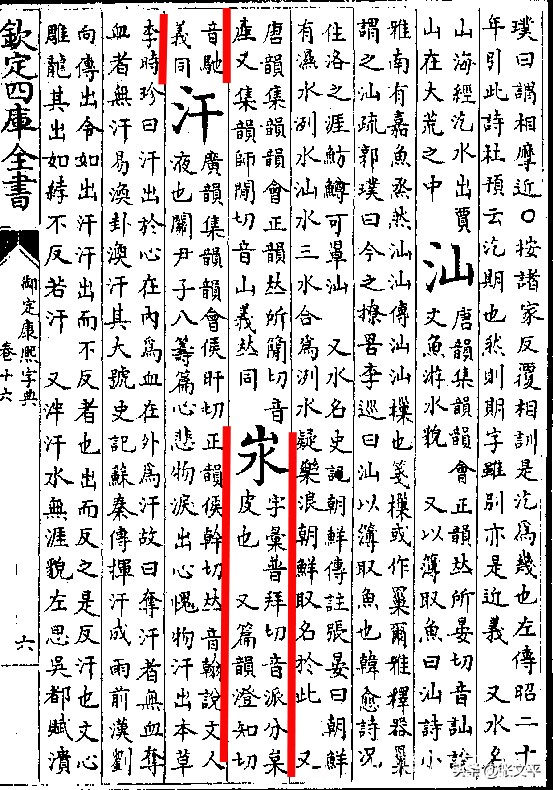 璞曰謂相摩近〇按諸家反覆相訓是汔為幾也左傳昭二十
年引此詩杜預云汔期也然則期字雖別亦是近義　又水名
山海經汔水出賈
山在大荒之中
汕
唐韻集韻韻會正韻𠀤所晏切音訕說
文魚游水貌　又以簿取魚曰汕詩小
雅南有嘉魚烝然汕汕傳汕汕樔也箋樔或作罺爾雅釋器罺
謂之汕疏郭璞曰今之撩罟李巡曰汕以簿取魚也韓愈詩況
住洛之涯魴鱒可罩汕　又水名史記朝鮮傳註張晏曰朝鮮
有濕水洌水汕水三水合為洌水疑樂浪朝鮮取名於此　又
唐韻集韻韻會正韻𠀤所簡切音
產又集韻師閒切音山義𠀤同
𣲖
字彙普拜切音派分枲
皮也　又篇韻澄知切
音馳
義同
汗
廣韻集韻韻會侯旰切正韻侯幹切𠀤音翰說文人
液也關尹子八籌篇心悲物淚出心愧物汗出本草
李時珍曰汗出於心在內為血在外為汗故曰奪汗者無血奪
血者無汗易渙卦渙汗其大號史記蘇秦傳揮汗成雨前漢劉
向傳出令如出汗汗出而不反者也出而反之是反汗也文心
雕龍其出如綍不反若汗　又泮汗水無涯貌左思吳都賦濆
欽定四庫全書
御定康熙字典
卷十六
六
头条@张文平